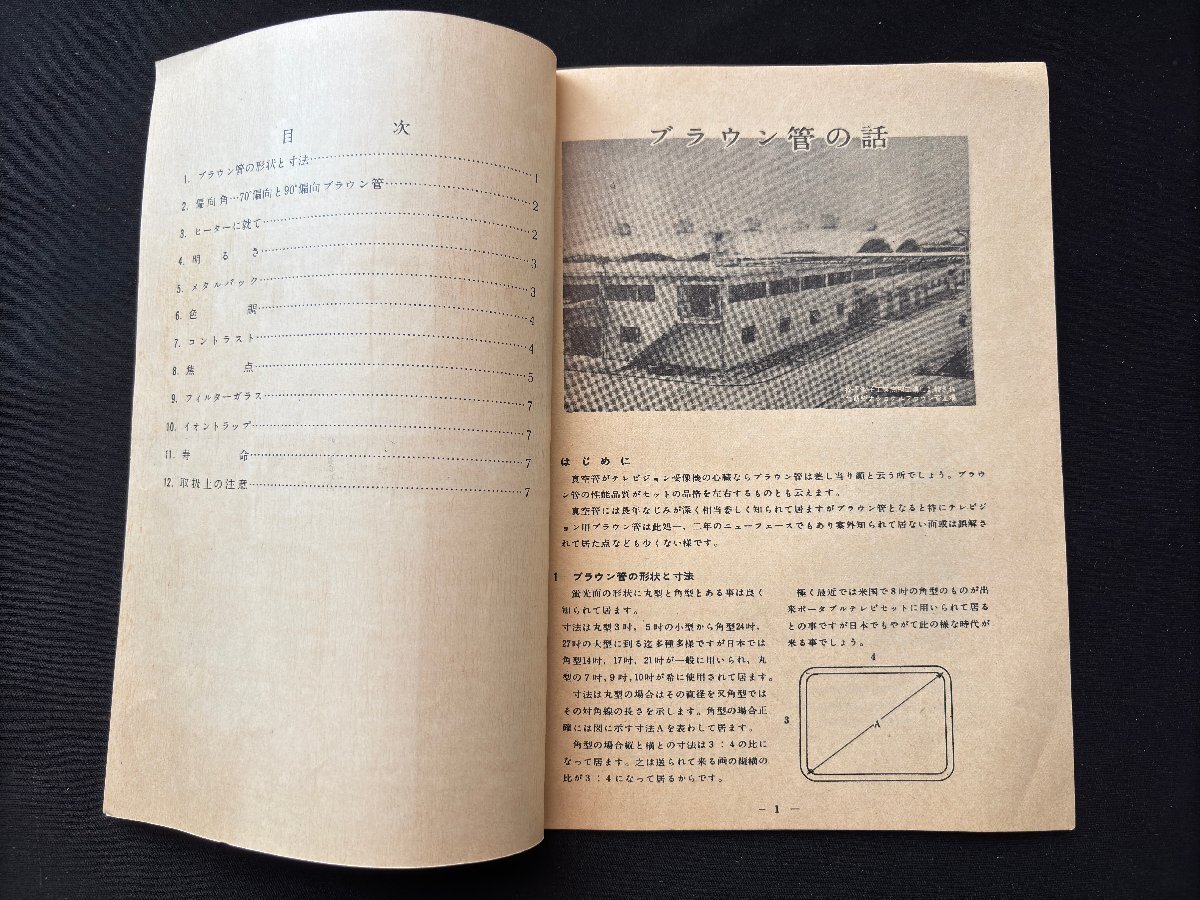 目　　次
1. ブラウン管の形状と寸法……1
2. 偏向角…70°偏向と90°偏向ブラウン管……2
3. ヒーターに就て……2
4. 明るさ……3
5. メタルバック……3
6. 色　調……4
7. コントラスト……4
8. 焦　点……5
9. フィルターガラス……7
10. イオントラップ……7
11. 寿　命……7
12. 取扱上の注意……7
ブラウン管の話
はじめに
真空管がテレビジョン受像機の心臓ならブラウン管は差し当り顔と云う所でしょう。ブラウ
ン管の性能品質がセットの品格を左右するものとも云えます。
真空管には長年なじみが深く相当委しく知られて居ますがブラウン管となると特にテレビジ
ョン用ブラウン管は此処一、二年のニューフェースでもあり案外知られて居ない面或は誤解さ
れて居た点なども少くない様です。
1　ブラウン管の形状と寸法
螢光面の形状に丸型と角型とある事は良く
知られて居ます。
寸法は丸型3吋，5吋の小型から角型24吋，
27吋の大型に到る迄多種多様ですが日本では
角型14吋，17吋，21吋が一般に用いられ，丸
型の7吋，9吋，10吋が希に使用されて居ます。
寸法は丸型の場合はその直径を又角型では
その対角線の長さを示します。角型の場合正
確には図に示す寸法Aを表わして居ます。
角型の場合縦と横との寸法は3：4の比に
なって居ます。之は送られて来る画の縦横の
比が3：4になって居るからです。
極く最近では米国で8吋の角型のものが出
来ポータブルテレビセットに用いられて居る
との事ですが日本でもやがて此の様な時代が
来る事でしょう。
4
3
A
－ 1 －